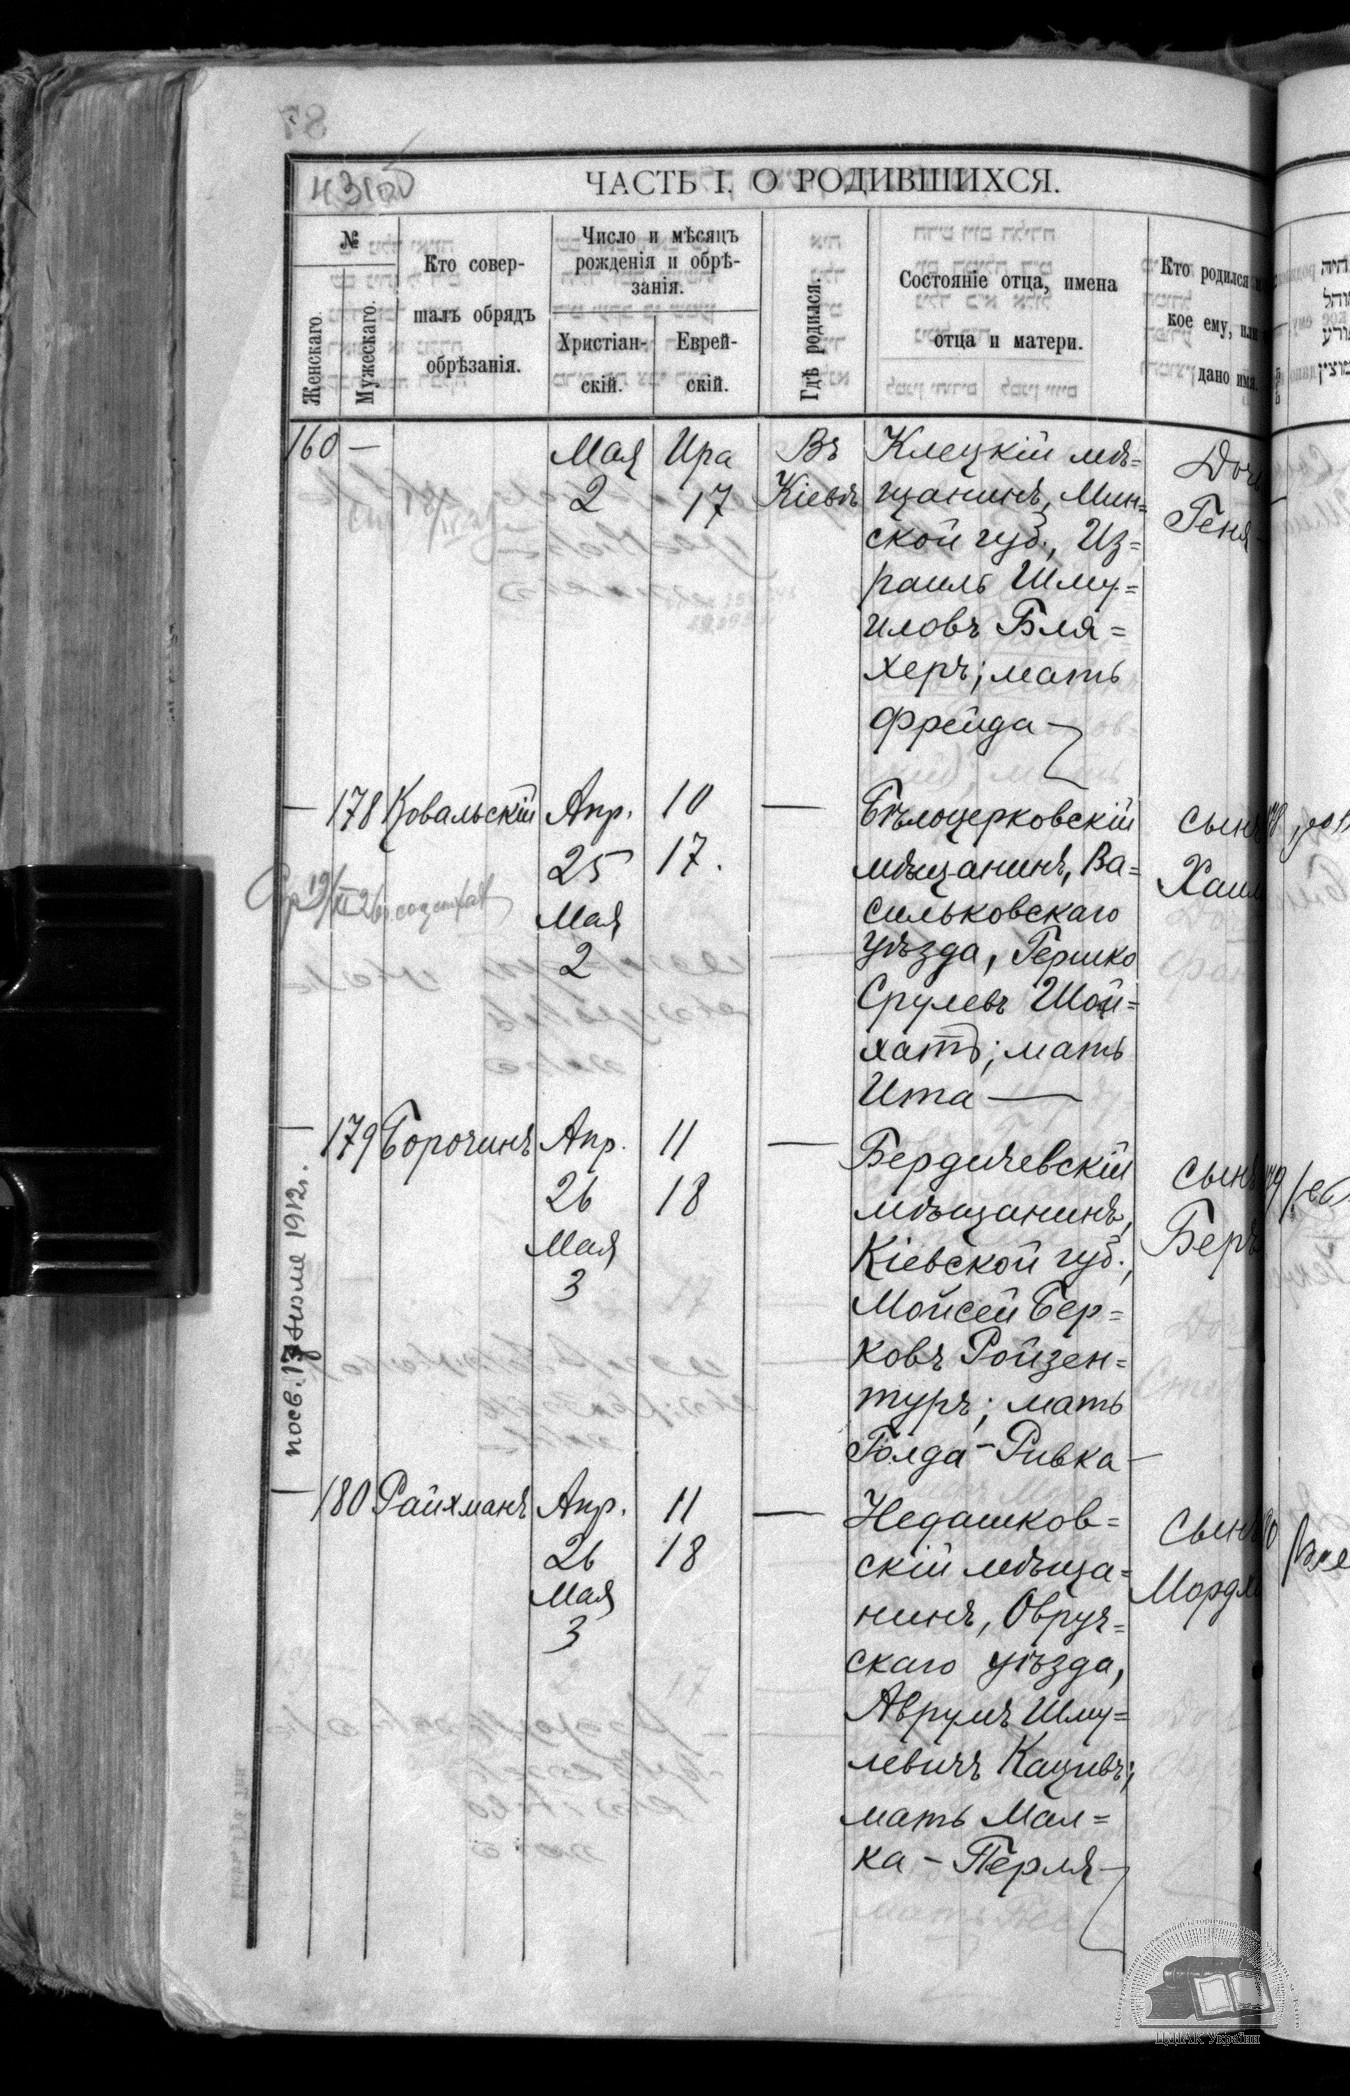 ЧАСТЬ I. О РОДИВШИХСЯ.
№
Женскаго.
Мужескаго.
Кто совер-
шалъ обрядъ
обрѣзанія.
Число и мѣсяцъ
рожденія и обрѣ-
занія.
Христіан-
скій.
Еврей-
скій.
Гдѣ родился.
Состояніе отца, имена
отца и матери.
Кто родился
кое ему, или
дано имя.
160 —
Мая
2
Ира
17
Въ
Кіевѣ
Клецкій мѣ=
щанинъ, Мин=
ской губ., Из=
раиль Шму=
иловъ Бля=
херъ; мать
Фрейда —
Дочь
Геня
— 178 Ковальскій
Апр.
25
Мая
2
10
17.
—
Бѣлоцерковскій
мѣщанинъ, Ва=
сильковскаго
уѣзда, Гершко
Срулевъ Шой=
хатъ; мать
Ита —
сынъ
Хаим
— 179 Борочинъ
Апр.
26
Мая
3
11
18
—
Бердичевскій
мѣщанинъ,
Кіевской губ.,
Мойсей Бер=
ковъ Ройзен=
туръ; мать
Голда-Ривка —
сынъ
Беръ
посв. 17 Июле 1912г.
— 180 Райхманъ
Апр.
26
Мая
3
11
18
—
Недашков=
скій мѣща=
нинъ, Овруч=
скаго уѣзда,
Аврумъ Шму=
левичъ Кацивъ;
мать Мал=
ка - Перля —
сынъ
Мордх
ЦДІАК України